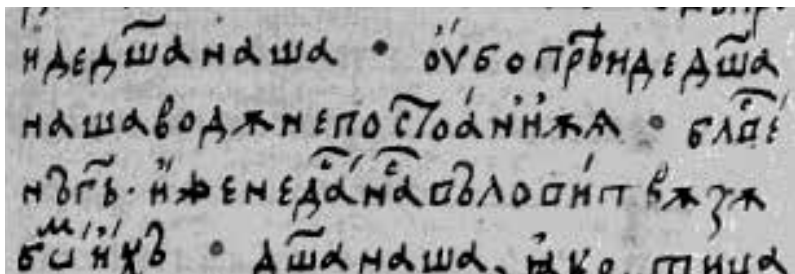 идедш҃анаша • ѹ҆бопрѣидедш҃а
нашаводѫнепостоа́ни́ѫѧ • блⷭ҇ве
нъгь҃· и҆женеда́ⷭ҇наⷭ҇вълови́твѫзѫ
бѡⷨи҆́хъ • дш҃анаша, ꙗ҆ко птица